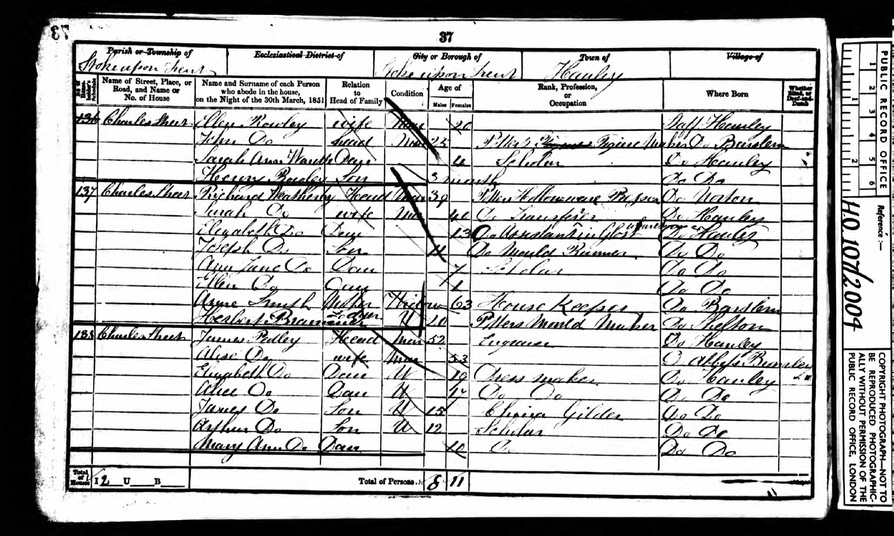 37
Parish or Township of Ecclesiastical District of City or Borough of Town of Village of
Stoke upon Trent Stoke upon Trent Hanley
Name of Street, Place, or Road, and Name or No. of House
Name and Surname of each Person who abode in the house, on the Night of the 30th March, 1851
Relation to Head of Family
Condition
Age of
Males Females
Rank, Profession, or Occupation
Where Born
Whether Blind, or Deaf-and-Dumb
136 Charles Street Ellen Rowley wife Mar 20 Staff Hanley
John Do head Mar 23 Figure Maker Do Burslem
Sarah Ann Dau 4 Scholar Do Hanley
Henry Rowley Son 3 month Do Do
137 Charles Street Richard Weatherby Head Mar 39 Do
Sarah Do wife Mar 40 Do Transferrer Do Hanley
Elizabeth Do Dau 13 Do Do Hanley
Joseph Do Son 11 Do Mould Runner Do Do
Ann Jane Do Dau 7 Scholar Do Do
Ellen Do Dau 1 Do Do
Anne Smith Mother Widow 63 House Keeper Do Burslem
Herbert Lodger U 20 Potters Mould Maker Do Shelton
138 Charles Street James Pedley Head Mar 52 Do Hanley
Alise Do wife Mar 53
Elizabeth Do Dau U 19 Dress maker Do Hanley
Alice Do Dau U 17 Do Do Do Do
James Do Son U 15 China Gilder Do Do
Arthur Do Son U 12 Scholar Do Do
Mary Ann Do Dau 10 Do Do Do
Total of Houses I 2 U B Total of Persons 8 11
PUBLIC RECORD OFFICE
1 2 3 4 5 6
Reference :-
H.O. 107/2004
COPYRIGHT PHOTOGRAPH—NOT TO
BE REPRODUCED PHOTOGRAPHIC-
ALLY WITHOUT PERMISSION OF THE
PUBLIC RECORD OFFICE, LONDON